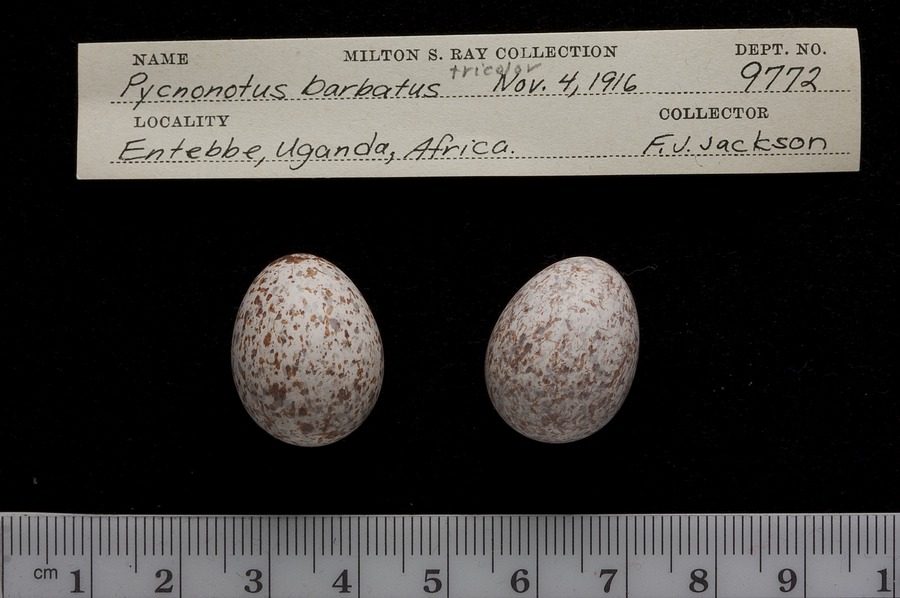 NAME MILTON S. RAY COLLECTION DEPT. NO.
tricolor
Pycnonotus barbatus Nov. 4, 1916 9772
LOCALITY COLLECTOR
Entebbe, Uganda, Africa. F.J. Jackson
cm 1 2 3 4 5 6 7 8 9 1